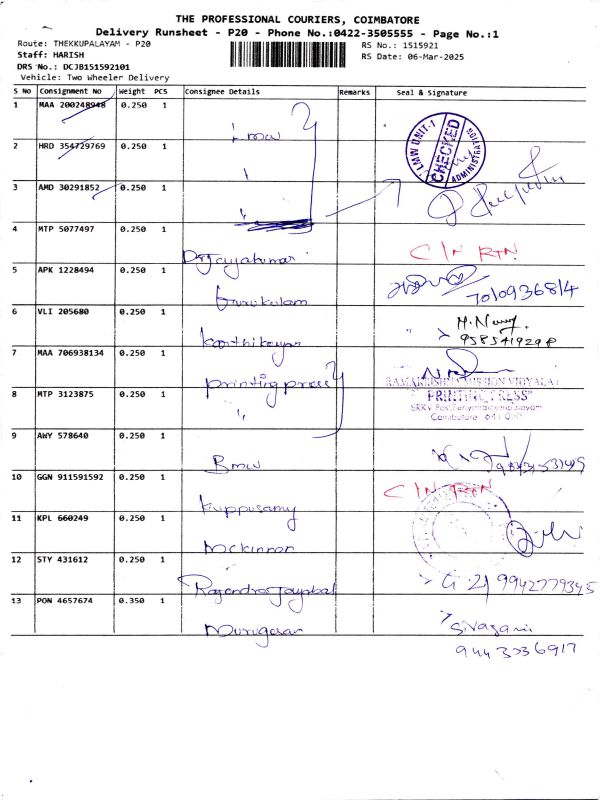 THE PROFESSIONAL COURIERS, COIMBATORE
Delivery Runsheet - P20 - Phone No.:0422-3505555 - Page No.:1
Route: THEKKUPALAYAM - P20
RS No.: 1515921
Staff: HARISH
RS Date: 06-Mar-2025
DRS No.: DCJB151592101
Vehicle: Two Wheeler Delivery
S No Consignment No Weight PCS Consignee Details Remarks Seal & Signature
1 MAA 200248948 0.250 1 Lmw
LMW UNIT-1 CHECKED ADMINISTRATION
2 HRD 354729769 0.250 1 "
3 AMD 30291852 0.250 1 "
4 MTP 5077497 0.250 1 Dr Jayakumar C/N RTN
5 APK 1228494 0.250 1 Gurukulam 7010936814
6 VLI 205680 0.250 1 Karthikeyan 9585419298
7 MAA 706938134 0.250 1 Printing press
RAMAKRISHNA MISSION VIDYALAYA
PRINTING PRESS
8 MTP 3123875 0.250 1 "
SRKV Post, Periyanaickenpalayam
Coimbatore - 641 020
9 AWY 578640 0.250 1 Bmw
10 GGN 911591592 0.250 1 Kuppusamy C/N RTN
11 KPL 660249 0.250 1 Mckinnon
12 STY 431612 0.250 1 Rajendra Jayabal 9942779345
13 PON 4657674 0.350 1 Murugesan Sivagami
9443036917